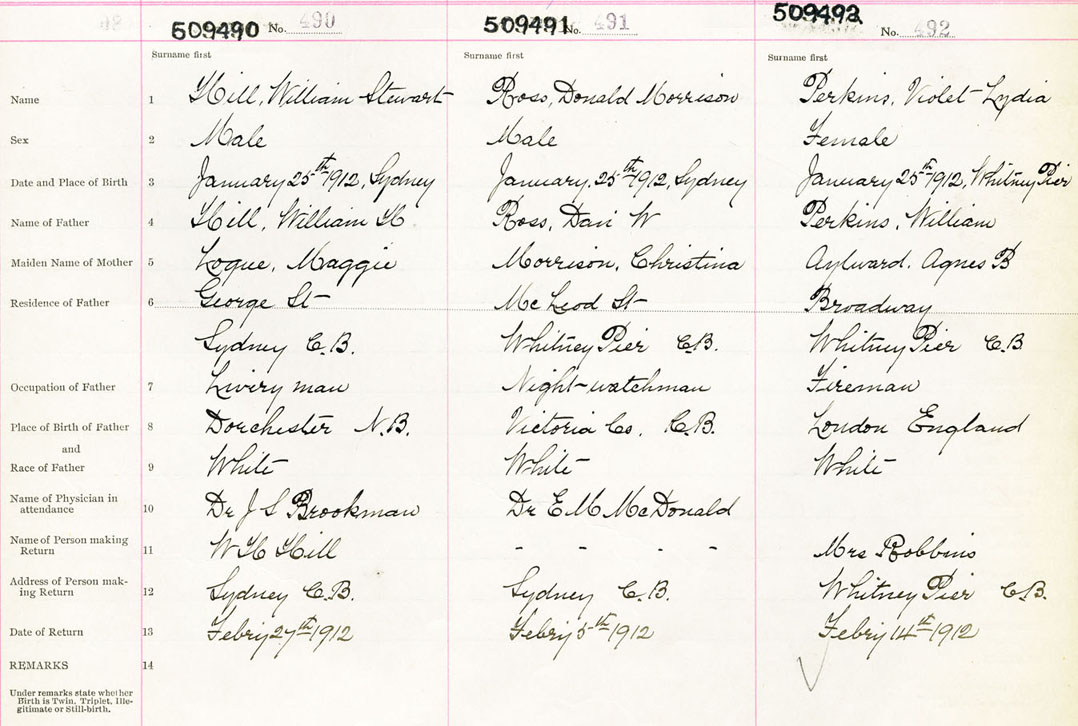 509490 No. 490 509491 No. 491 509492 No. 492
Surname first Surname first Surname first
Name 1 Hill, William Stewart Ross, Donald Morrison Perkins, Violet Lydia
Sex 2 Male Male Female
Date and Place of Birth 3 January 25th 1912, Sydney January, 25th 1912, Sydney January 25th 1912, Whitney Pier
Name of Father 4 Hill, William H Ross, Dan W Perkins, William
Maiden Name of Mother 5 Logue, Maggie Morrison, Christina Aylward, Agnes B
Residence of Father 6 George St McLeod St Broadway
Sydney C.B. Whitney Pier C.B. Whitney Pier C.B
Occupation of Father 7 Livery man Night-watchman Fireman
Place of Birth of Father 8 Dorchester N.B. Victoria Co. C.B. London England
and
Race of Father 9 White White White
Name of Physician in
attendance 10 Dr J S Brookman Dr E M McDonald
Name of Person making
Return 11 W H Hill - - - - Mrs Robbins
Address of Person mak-
ing Return 12 Sydney C.B. Sydney C.B. Whitney Pier C.B.
Date of Return 13 Febry 27th 1912 Febry 5th 1912 Febry 14th 1912
REMARKS 14
Under remarks state whether
Birth is Twin, Triplet, Ille-
gitimate or Still-birth.